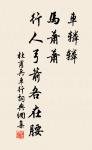 車轔轔
馬蕭蕭
行人弓箭各在腰
杜甫兵車行詞典網集